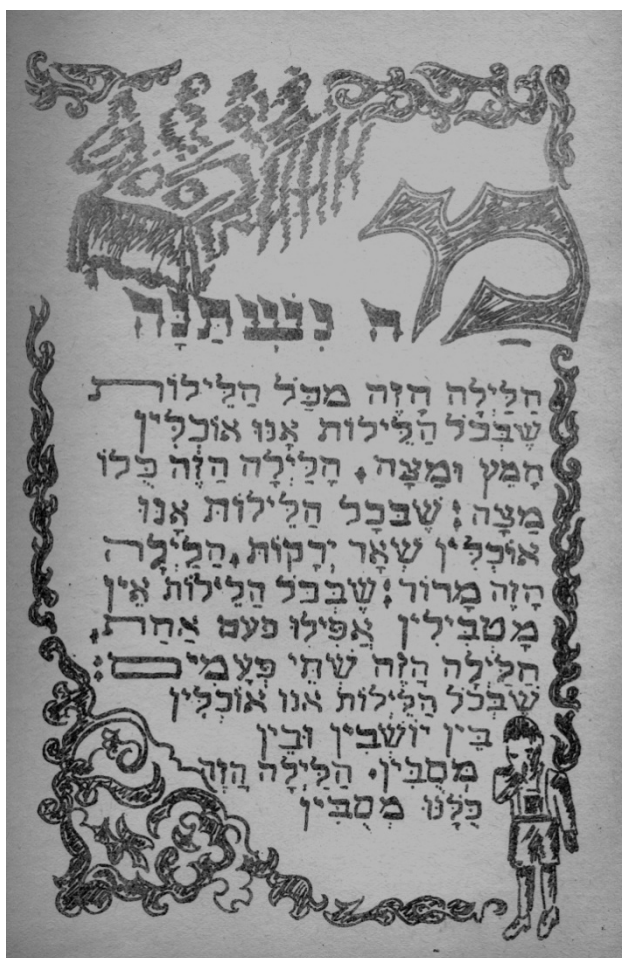 מַה נִּשְׁתַּנָּה
הַלַּיְלָה הַזֶּה מִכָּל הַלֵּילוֹת
שֶׁבְּכֹל הַלֵּילוֹת אָנוּ אוֹכְלִין
חָמֵץ וּמַצָּה. הַלַּיְלָה הַזֶּה כֻּלּוֹ
מַצָּה: שֶׁבְּכָל הַלֵּילוֹת אָנוּ
אוֹכְלִין שְׁאָר יְרָקוֹת. הַלַּיְלָה
הַזֶּה מָרוֹר: שֶׁבְּכֹל הַלֵּילוֹת אֵין
מַטְבִּילִין אֲפִילוּ פעם אַחַת.
הַלַּיְלָה הַזֶּה שְׁתֵּי פְּעָמִים:
שֶׁבְּכֹל הַלֵּילוֹת אנו אוֹכְלִין
בֵּין יוֹשְׁבִין וּבֵין
מְסֻבִּין. הַלַּיְלָה הַזֶּה
כֻּלָּנוּ מְסֻבִּין